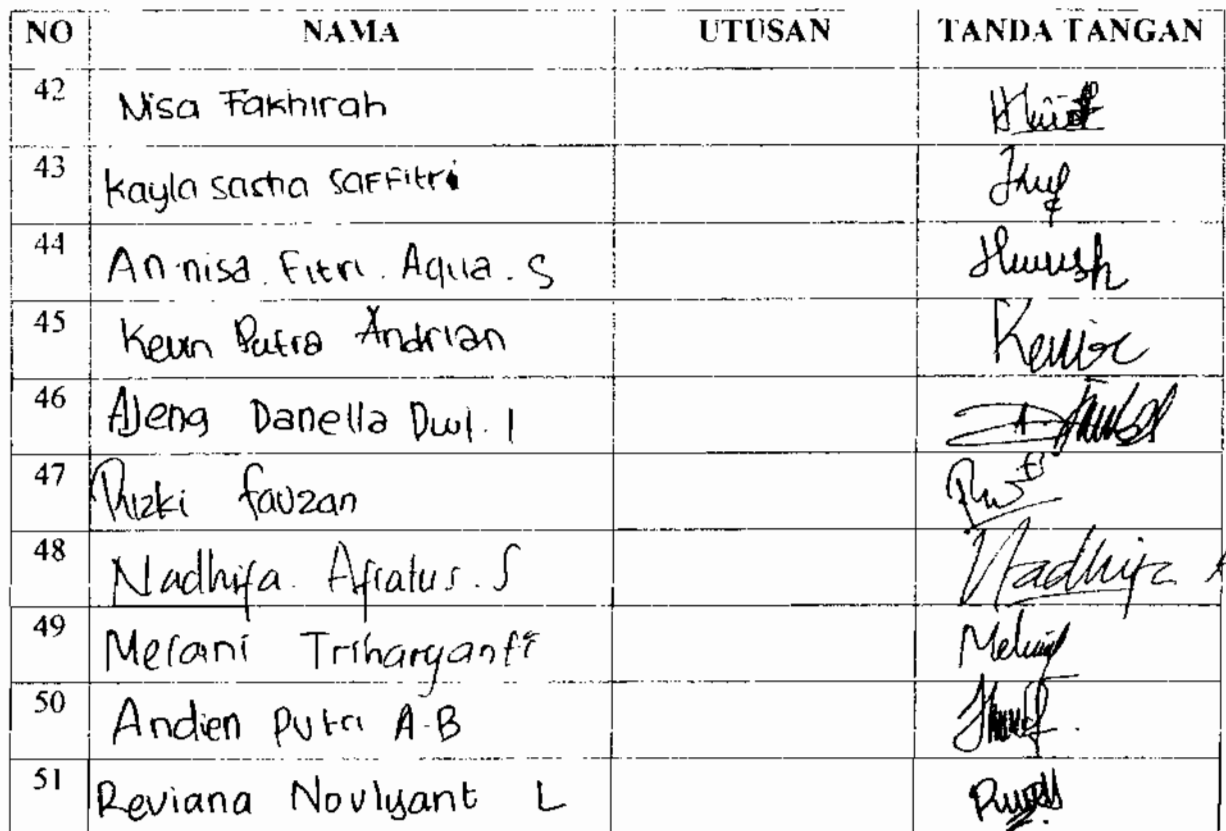 NO NAMA UTUSAN TANDA TANGAN
42 Nisa Fakhirah
43 Kayla Sasha Saffitri
44 An-nisa. Fitri. Aqua. S
45 Kevin Putra Andrian
46 Ajeng Danella Dwi. I
47 Rizki fauzan
48 Nadhifa. Afratus. S Nadhifa
49 Melani Triharyanti
50 Andien Putri A.B
51 Reviana Novlyant L